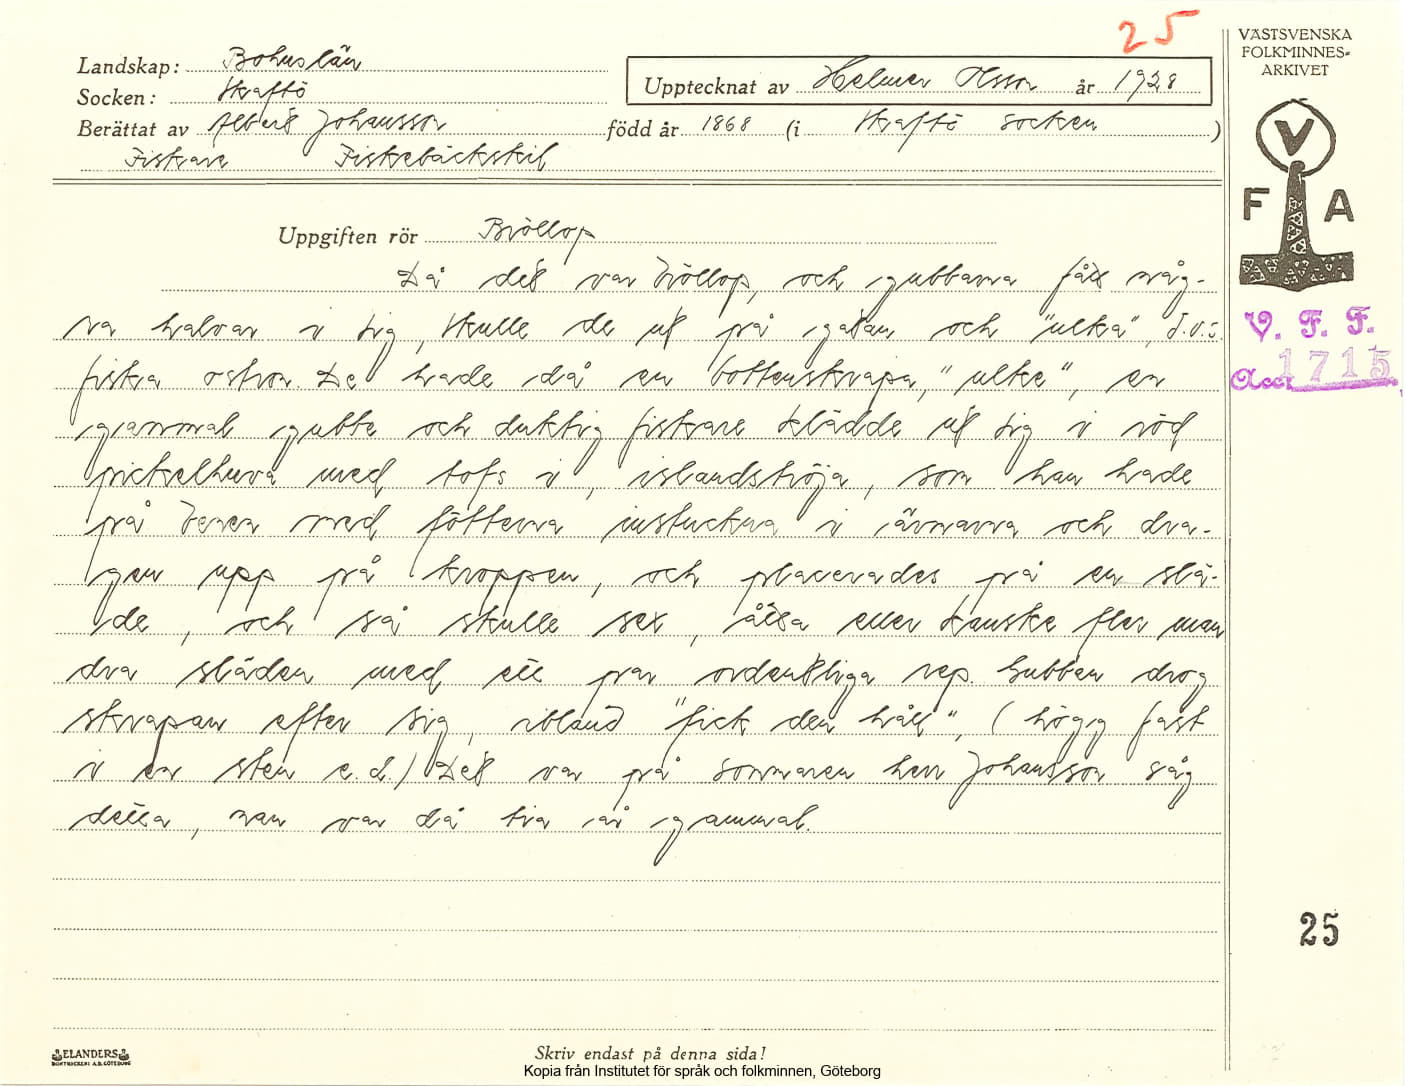 25
VÄSTSVENSKA
FOLKMINNES-
ARKIVET
Landskap: Bohuslän
Socken: Skaftö
Upptecknat av Helmer Olsson år 1928
Berättat av Albert Johansson född år 1868 (i Skaftö socken)
Fiskare Fiskebäckskil
V
F A
Uppgiften rör Bröllop
Då det var bröllop, och gubbarna fått någ-
ra halvar i sig, skulle de ut på gatan och "ulka", d.v.s.
fiska ostron. De hade då en bottenskrapa, "ulke", en
gammal gubbe och duktig fiskare klädde ut sig i röd
pickelhuva med tofs i, islandströja, som han hade
på benen med fötterna instuckna i ärmarna och dra-
gen upp på kroppen, och placerades på en slä-
de, och så skulle sex, åtta eller kanske fler man
dra släden med ett par ordentliga rep. Gubben drog
skrapan efter sig, ibland "fick den håll", (högg fast
i en sten e.d.) Det var på sommaren herr Johansson såg
detta, han var då tia år gammal.
V. F. F.
Acc. 1715
25
ELANDERS
BOKTRYCKERI A.B. GÖTEBORG
Skriv endast på denna sida!
Kopia från Institutet för språk och folkminnen, Göteborg